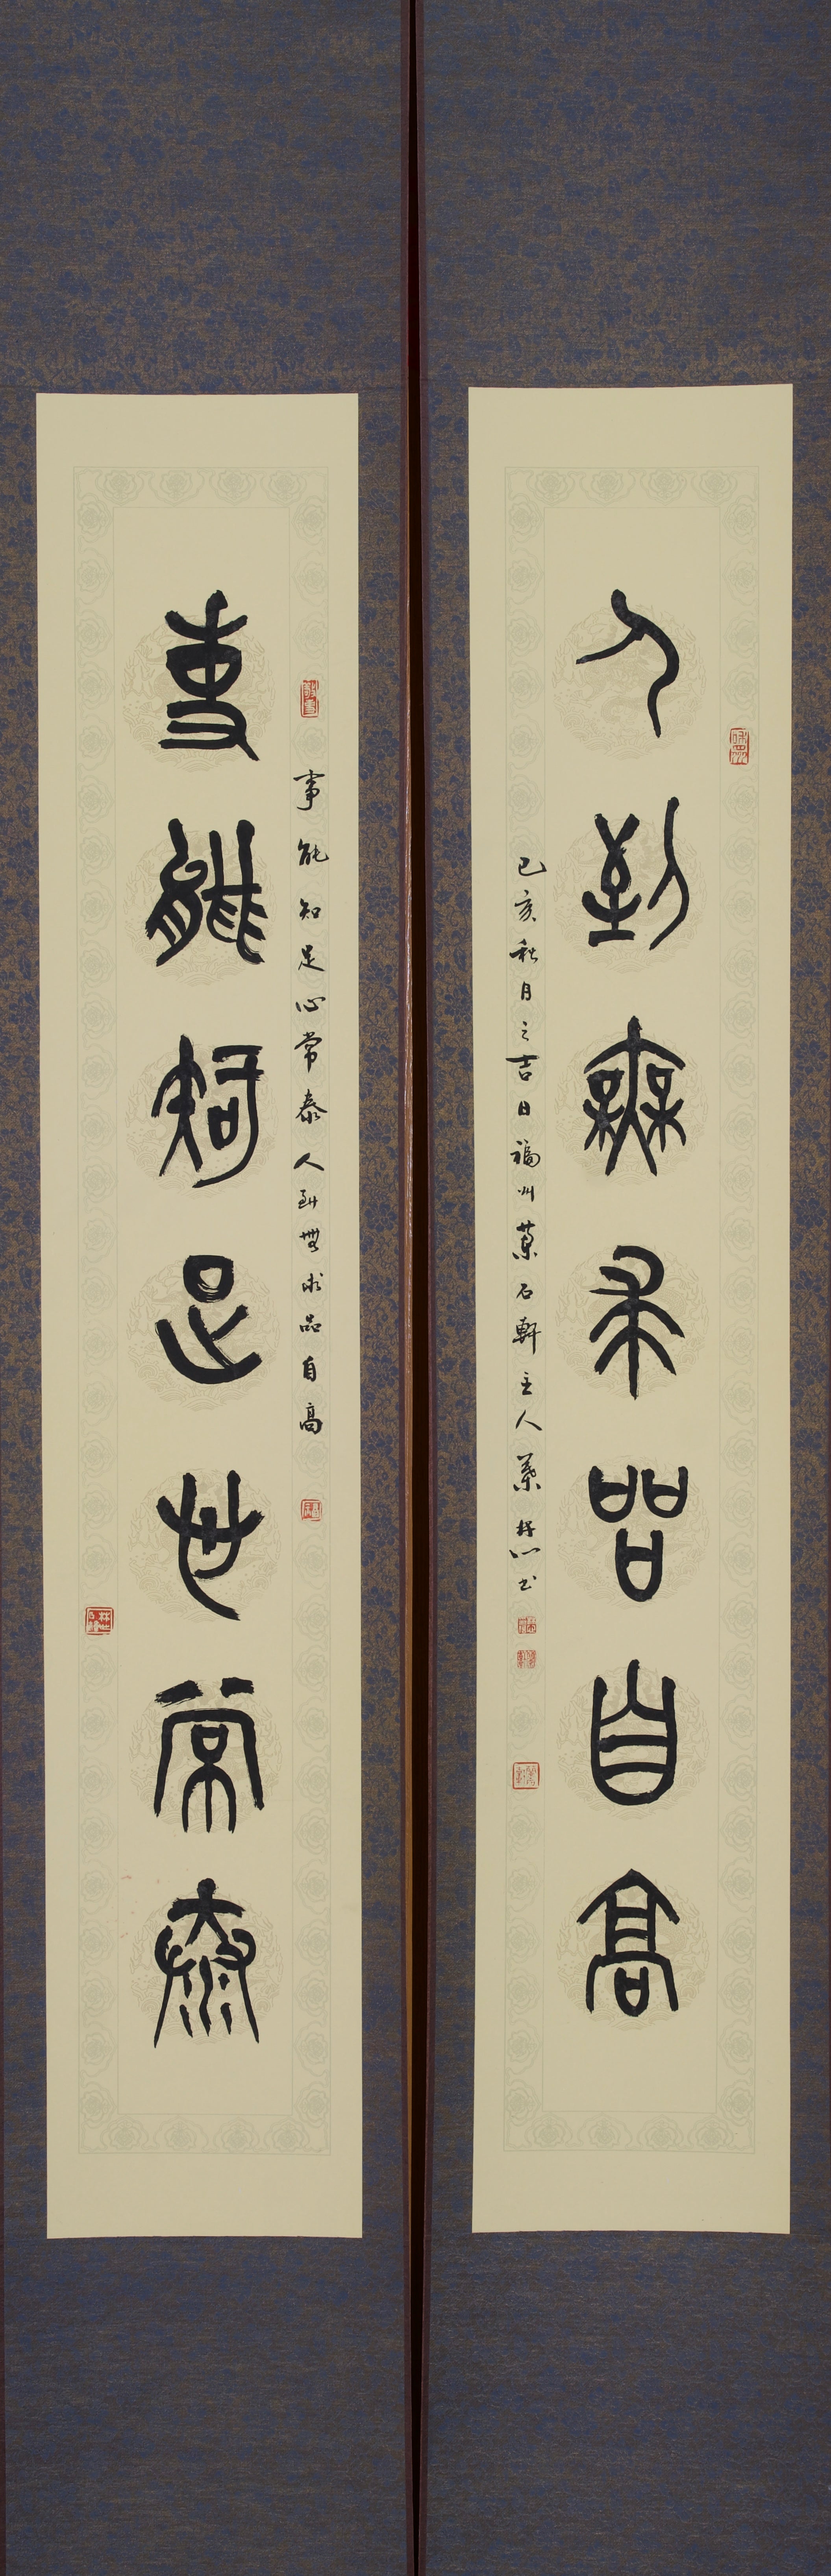 事能知足心常泰
事能知足心常泰人到無求品自高
人到無求品自高
己亥秋月之吉日福州石軒主人书